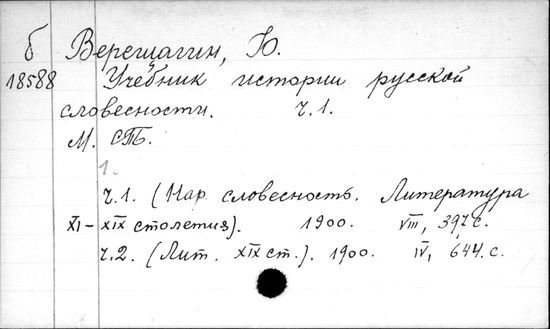 б Верещагин, Ю.
18588 Учебник истории русской
словесности. ч.1.
М. СТБ.
1.
ч.1. (Нар. словесность. Литература
XI–XIX столетия). 1900. VIII, 397 с.
ч.2. (Лит. XIX ст.). 1900. IV, 644. с.